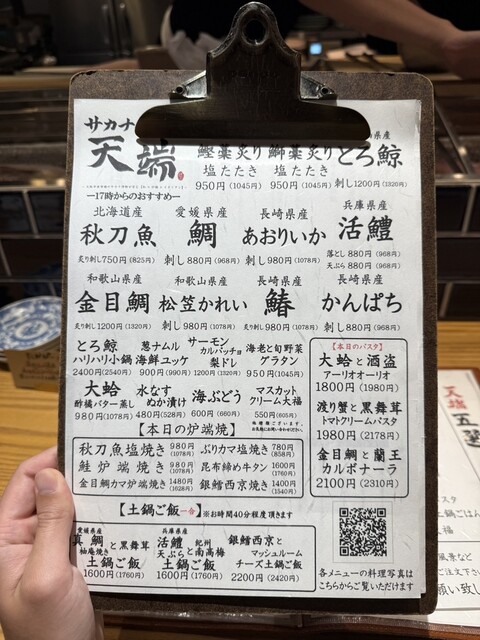 サカナ
天端
―17時からのおすすめ―
鰹藁炙り
塩たたき
950円(1045円)
鰤藁炙り
塩たたき
950円(1045円)
県産
とろ鯨
刺し1200円(1320円)
北海道産
秋刀魚
炙り刺し750円(825円)
愛媛県産
鯛
刺し880円(968円)
長崎県産
あおりいか
刺し980円(1078円)
兵庫県産
活鱧
落とし880円(968円)
天ぷら880円(968円)
和歌山県産
金目鯛
炙り刺し1200円(1320円)
和歌山県産
松笠かれい
刺し980円(1078円)
長崎県産
鰆
炙り刺し980円(1078円)
長崎県産
かんぱち
刺し880円(968円)
とろ鯨
ハリハリ小鍋
2400円(2540円)
葱ナムル
海鮮ユッケ
900円(990円)
サーモン
カルパッチョ
梨ドレ
1200円(1320円)
海老と旬野菜
グラタン
950円(1045円)
大蛤
酢橘バター蒸し
980円(1078円)
水なす
ぬか漬け
480円(528円)
海ぶどう
600円(660円)
マスカット
クリーム大福
550円(605円)
【本日のパスタ】
大蛤と酒盗
アーリオオーリオ
1800円(1980円)
渡り蟹と黒舞茸
トマトクリームパスタ
1980円(2178円)
金目鯛と蘭王
カルボナーラ
2100円(2310円)
【本日の炉端焼】
秋刀魚塩焼き 980円(1078円)
ぶりカマ塩焼き 780円(858円)
鮭炉端焼き 980円(1078円)
昆布締め牛タン 1600円(1760円)
金目鯛カマ炉端焼き 1480円(1628円)
銀鱈西京焼き 1400円(1540円)
【土鍋ご飯一合】※お時間40分程度頂きます
愛媛県産
真鯛と黒舞茸
柚庵焼き
土鍋ご飯
1600円(1760円)
兵庫県産
活鱧 紀州
天ぷらと南高梅
土鍋ご飯
1600円(1760円)
銀鱈西京と
マッシュルーム
チーズ土鍋ご飯
2200円(2420円)
各メニューの料理写真は
こちらからご覧いただけます
天端
五
パスタ
土鍋ごはん
大福
風景など
ご注文下さ
願い致し